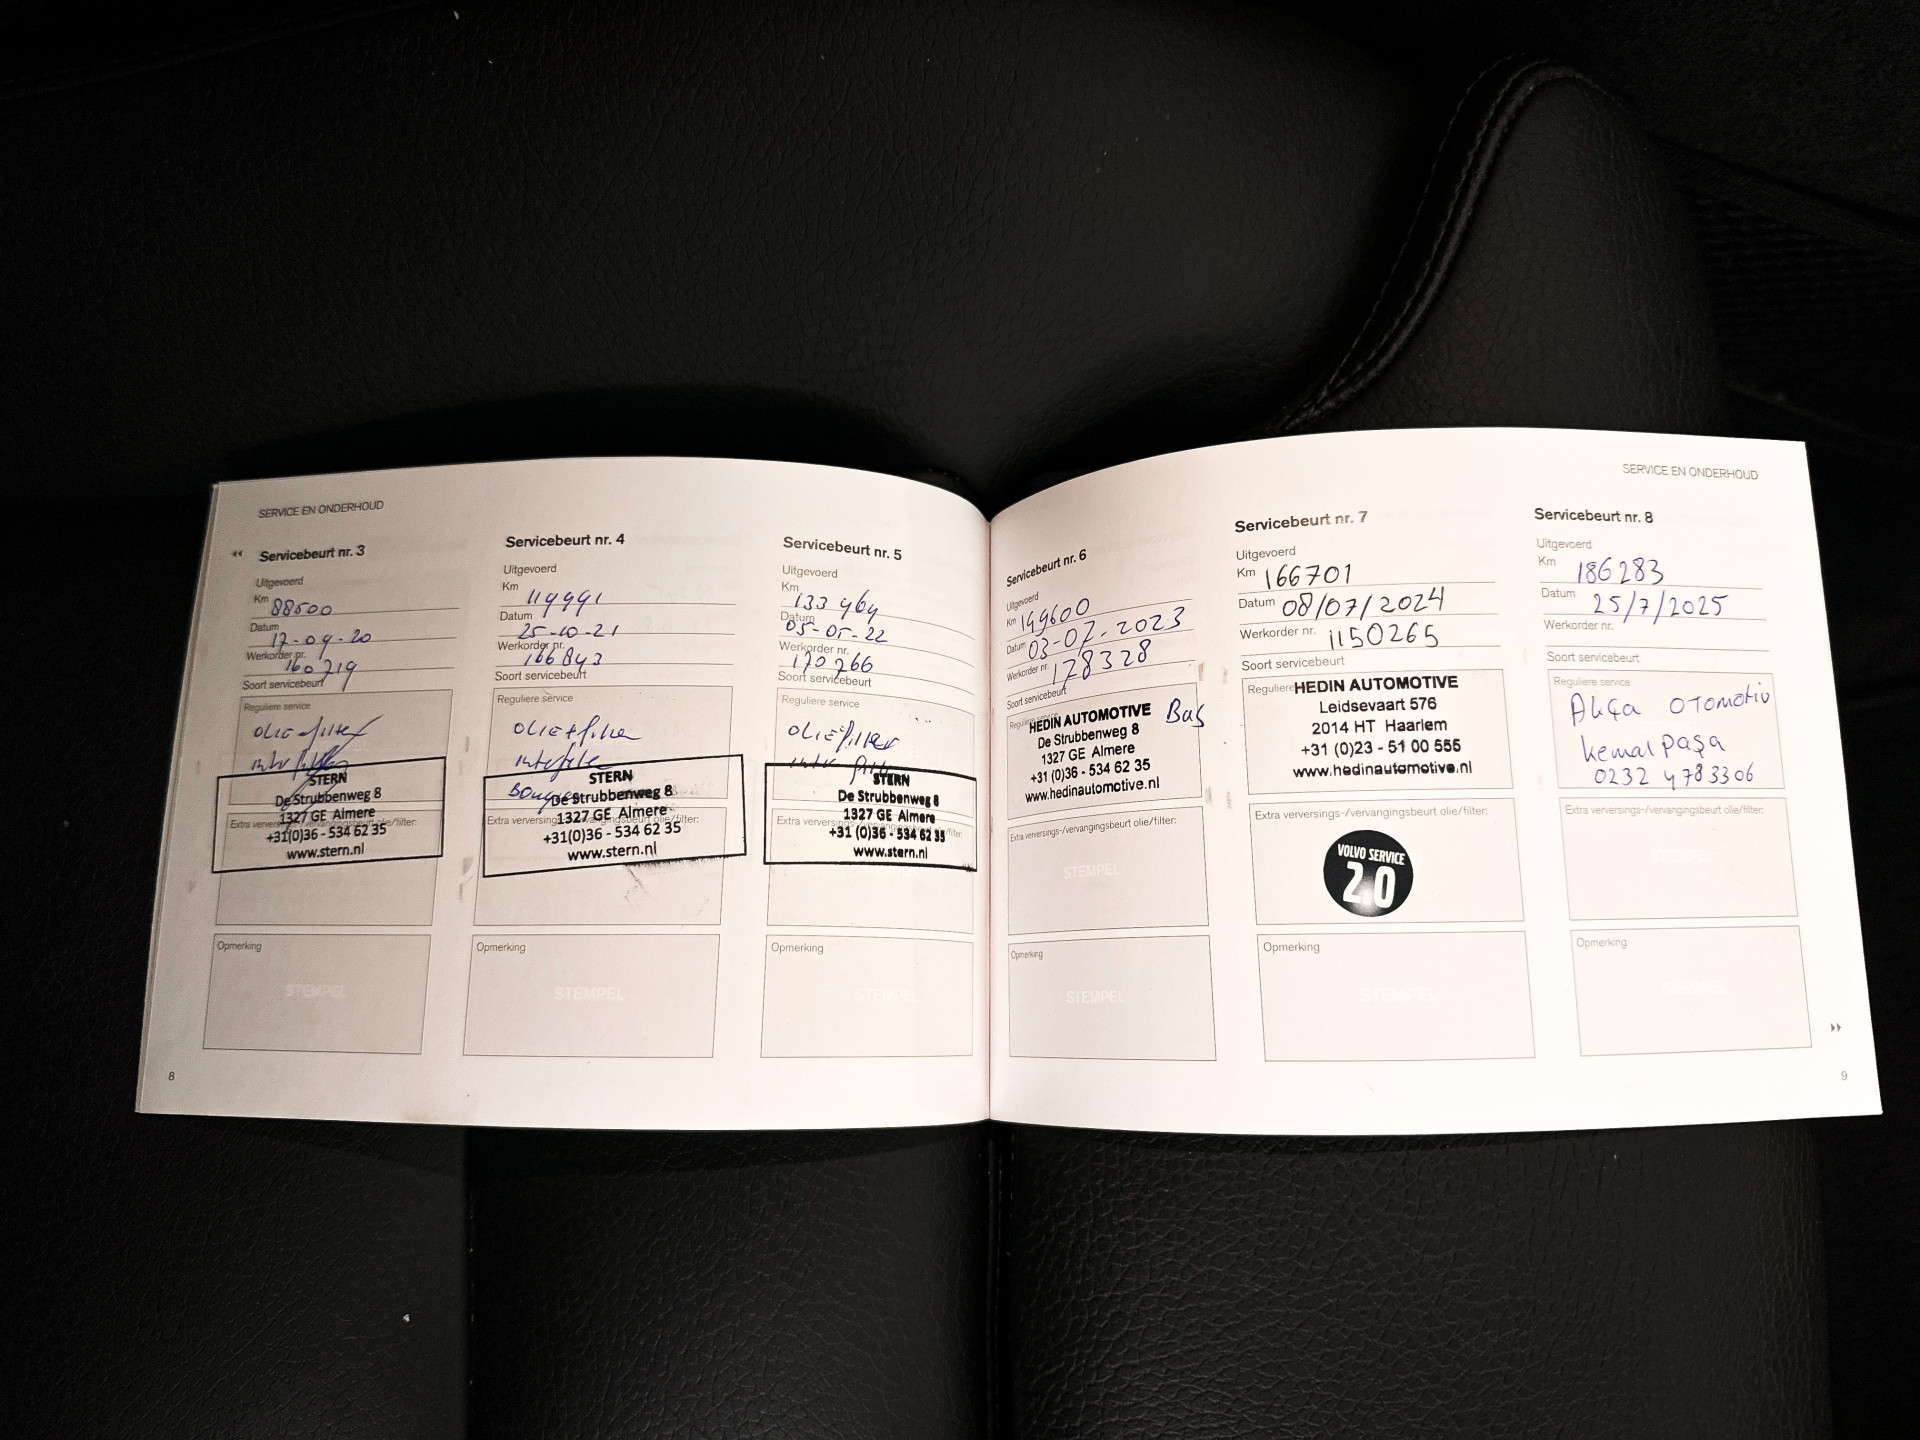 SERVICE EN ONDERHOUD
Servicebeurt nr. 3
Uitgevoerd
Km 88500
Datum
17-09-20
Werkorder nr.
160719
Soort servicebeurt
Reguliere service
OLIE-filter
STERN
De Strubbenweg 8
1327 GE Almere
Extra verversings-/vervangingsbeurt olie/filter:
+31(0)36 - 534 62 35
www.stern.nl
Opmerking
STEMPEL
8
Servicebeurt nr. 4
Uitgevoerd
Km
119991
Datum
25-10-21
Werkorder nr.
166843
Soort servicebeurt
Reguliere service
OLIE+filter
STERN
De Strubbenweg 8
Extra verversings-/vervangingsbeurt olie/filter:
1327 GE Almere
+31(0)36 - 534 62 35
www.stern.nl
Opmerking
STEMPEL
Servicebeurt nr. 5
Uitgevoerd
Km
133464
Datum
05-05-22
Werkorder nr.
170266
Soort servicebeurt
Reguliere service
OLIEfilter
STERN
De Strubbenweg 8
1327 GE Almere
Extra verversings-/vervangingsbeurt olie/filter:
+31 (0)36 - 534 62 35
www.stern.nl
Opmerking
STEMPEL
SERVICE EN ONDERHOUD
Servicebeurt nr. 6
Uitgevoerd
Km 149600
Datum 03-07-2023
Werkorder nr. 178328
Soort servicebeurt
Reguliere service
HEDIN AUTOMOTIVE Bas
De Strubbenweg 8
1327 GE Almere
+31 (0)36 - 534 62 35
www.hedinautomotive.nl
Extra verversings-/vervangingsbeurt olie/filter:
STEMPEL
Opmerking
STEMPEL
Servicebeurt nr. 7
Uitgevoerd
Km 166701
Datum 08/07/2024
Werkorder nr. 1150265
Soort servicebeurt
Reguliere HEDIN AUTOMOTIVE
Leidsevaart 576
2014 HT Haarlem
+31 (0)23 - 51 00 555
www.hedinautomotive.nl
Extra verversings-/vervangingsbeurt olie/filter:
VOLVO SERVICE
2.0
Opmerking
STEMPEL
Servicebeurt nr. 8
Uitgevoerd
Km 186283
Datum 25/7/2025
Werkorder nr.
Soort servicebeurt
Reguliere service
Akça OTOmotiv
kemalpaşa
0232 4783306
Extra verversings-/vervangingsbeurt olie/filter:
STEMPEL
Opmerking
STEMPEL
9